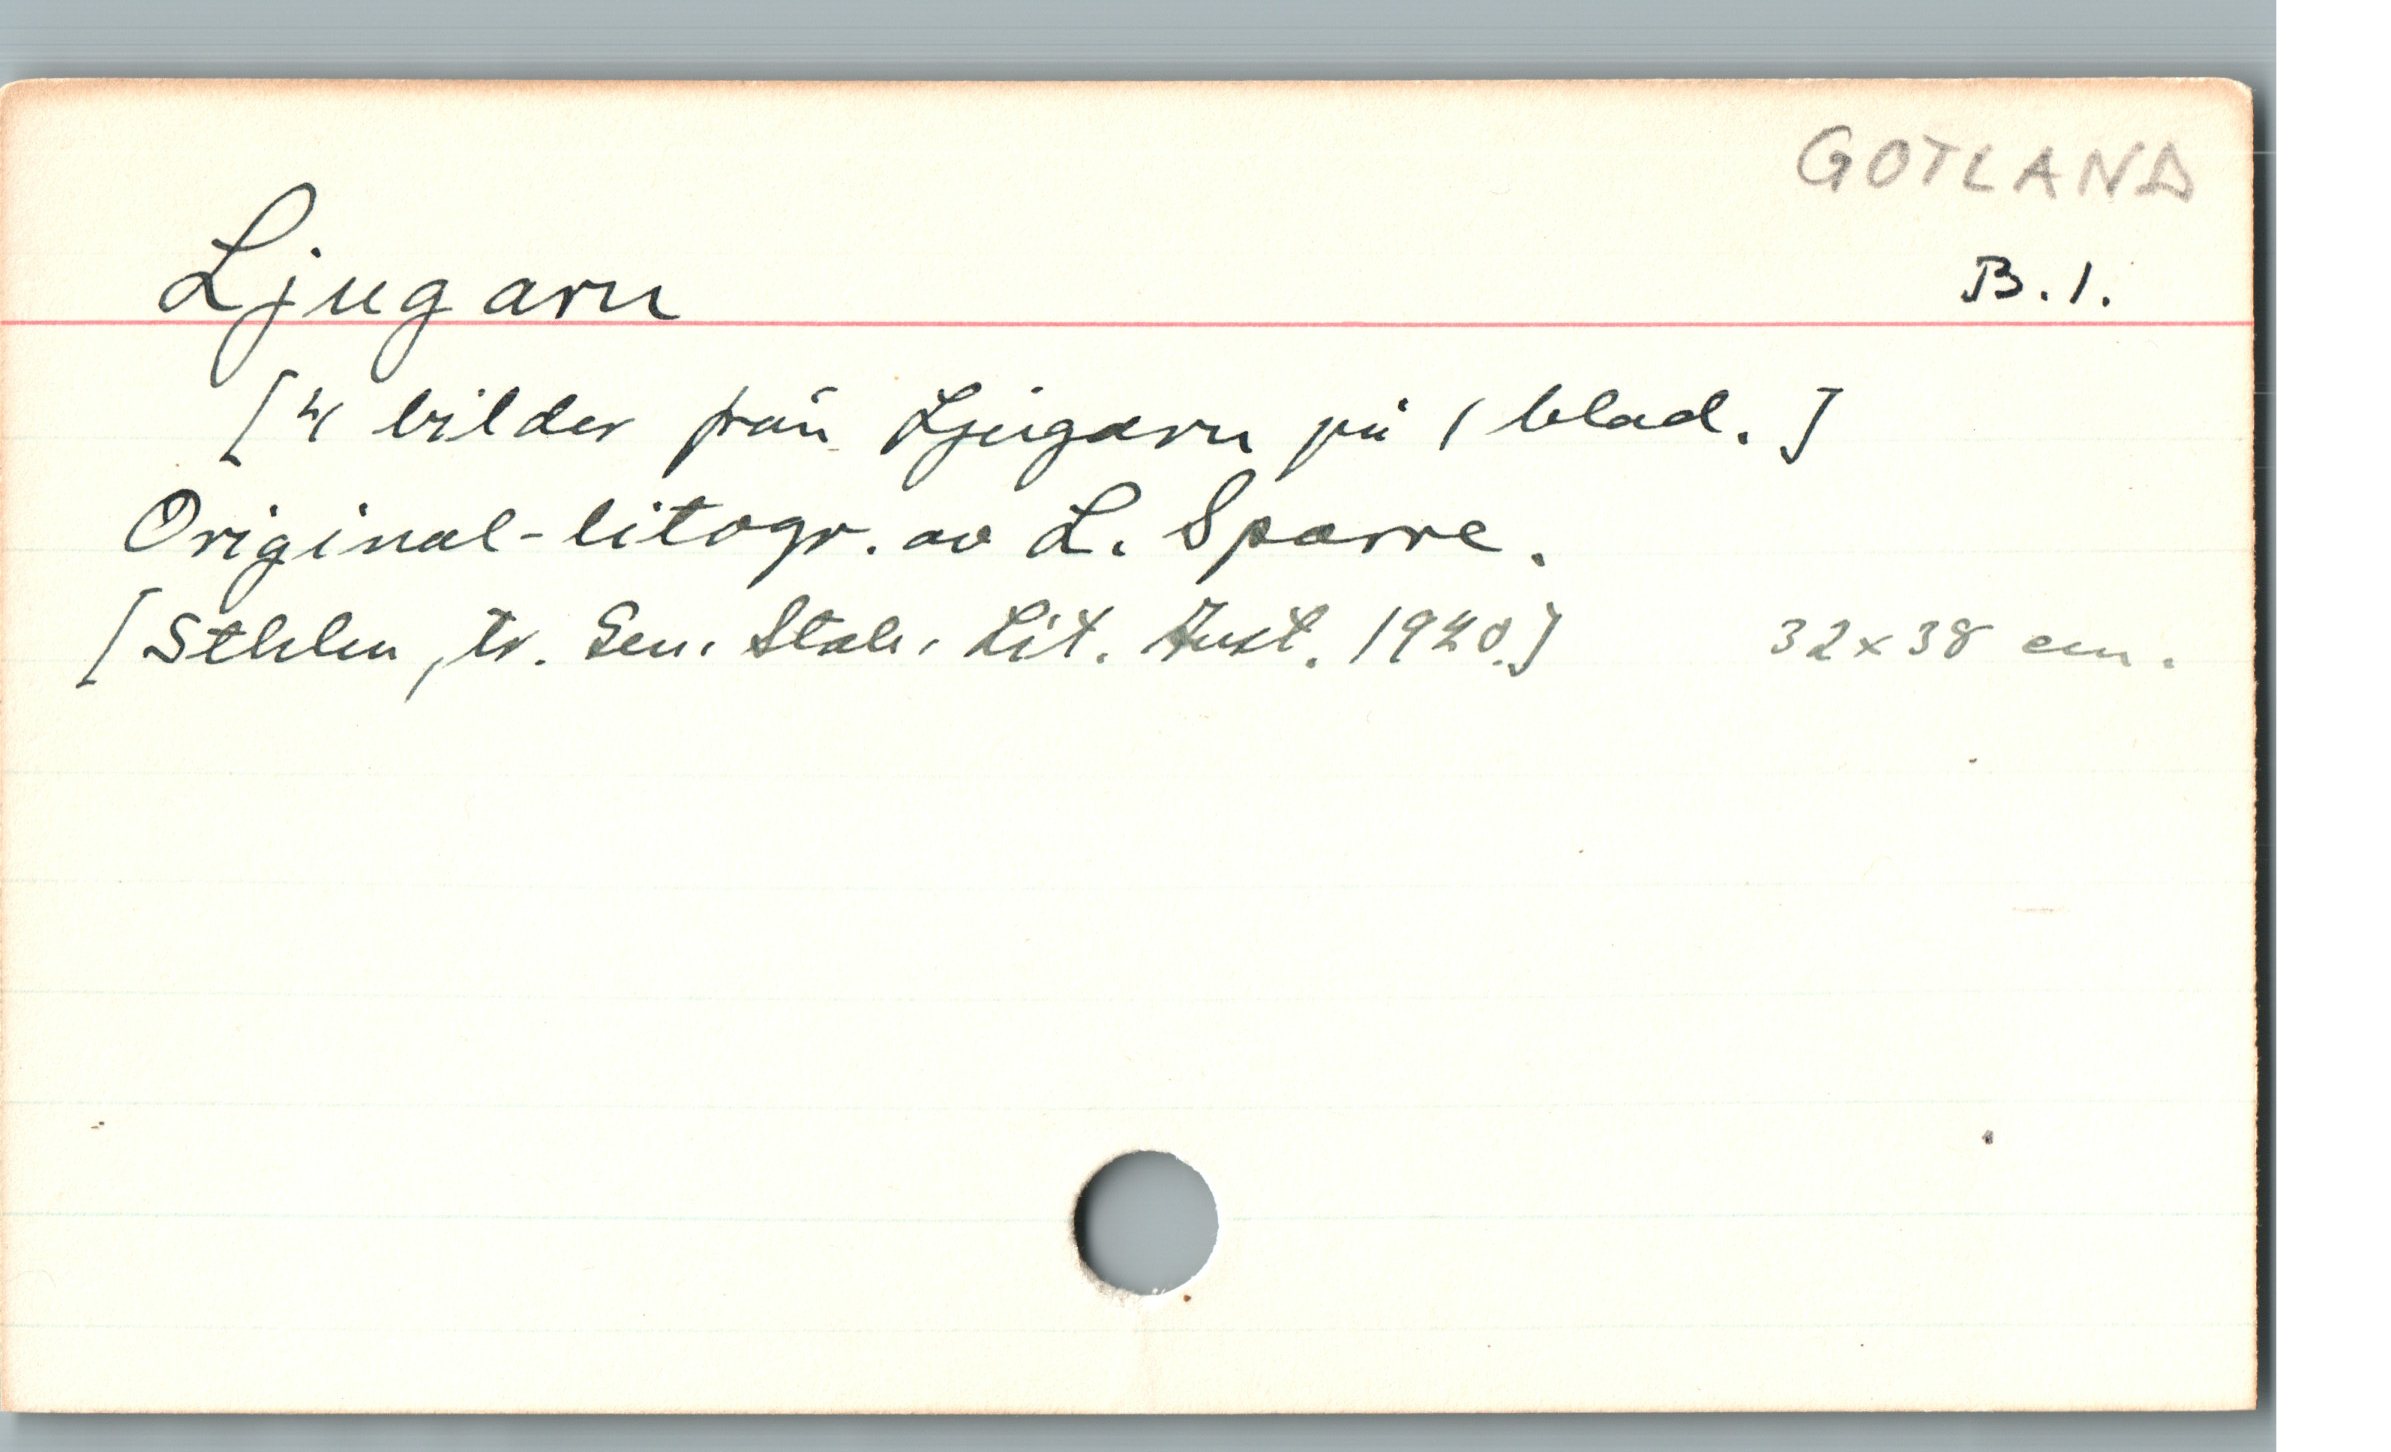 GOTLAND
Ljugarn B.1.
[4 bilder från Ljugarn på 1 blad.]
Original-litogr. av L. Sparre.
[Sthlm, tr. Gen. Stab. Lit. Anst. 1920.] 32x38 cm.